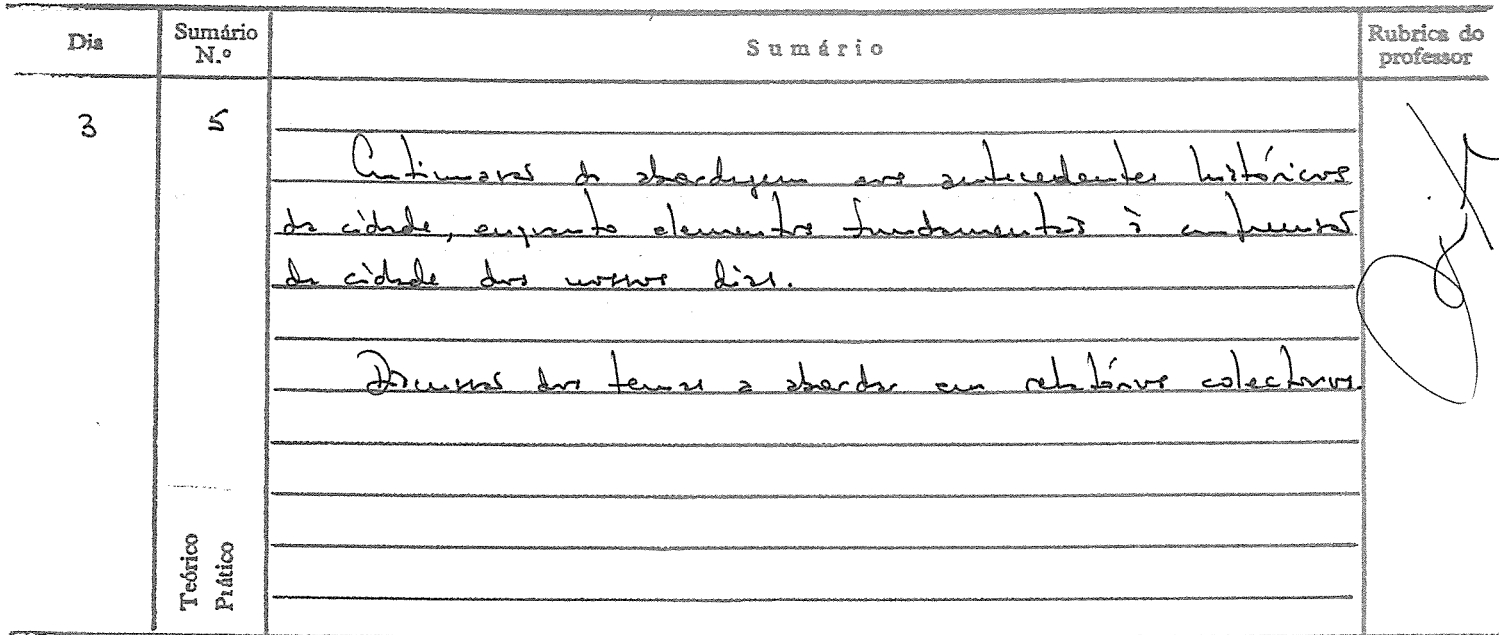 Dia
Sumário N.º
Sumário
Rubrica do professor
3
5
Continuação da abordagem aos antecedentes históricos
da cidade, enquanto elementos fundamentais à compreensão
da cidade dos nossos dias.
Discussão dos temas a abordar em relatórios colectivos.
Teórico
Prático